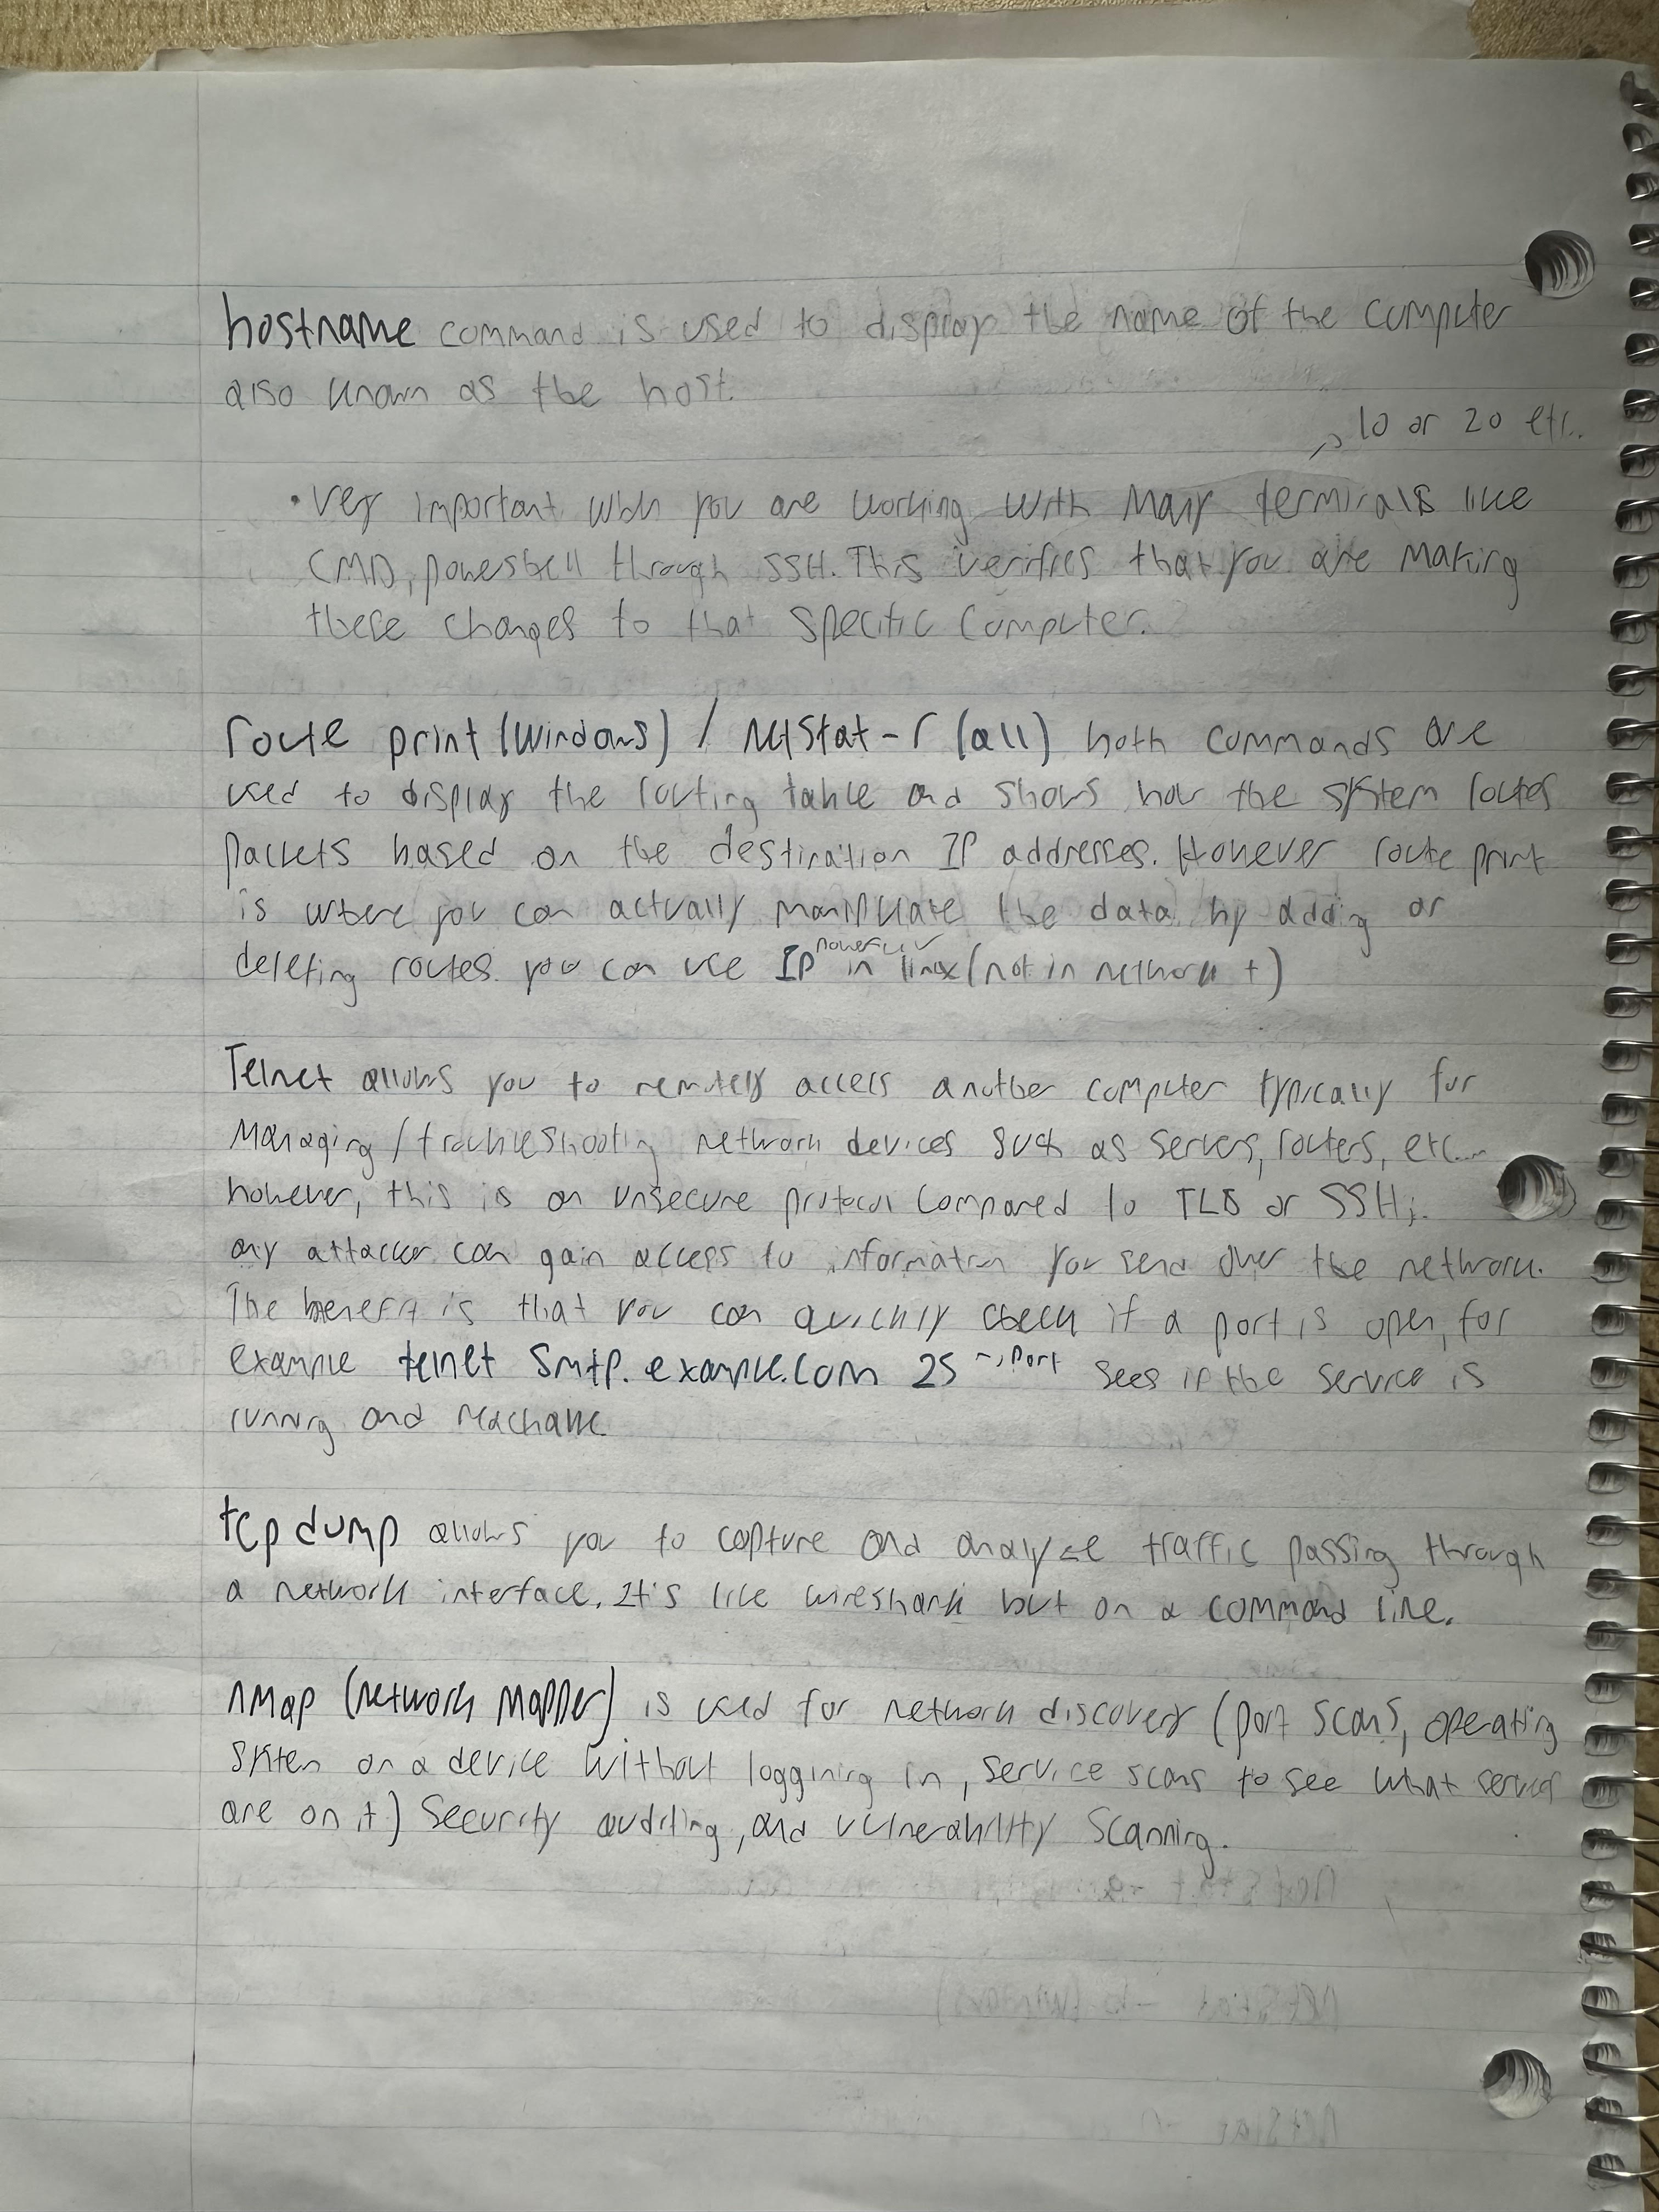 hostname command is used to display the name of the computer
also known as the host.
10 or 20 etc..
• very important when you are working with many terminals like
CMD, powershell through SSH. This verifies that you are making
these changes to that specific computer.
route print (windows) / netstat -r (all) both commands are
used to display the routing table and shows how the system routes
packets based on the destination IP addresses. However route print
is where you can actually manipulate the data by adding or
deleting routes. you can use IP powerful in linux (not in network +)
Telnet allows you to remotely access another computer typically for
managing/troubleshooting network devices such as servers, routers, etc...
however, this is an unsecure protocol compared to TLS or SSH;
any attacker can gain access to information you send over the network.
The benefit is that you can quickly check if a port is open, for
example telnet smtp.example.com 25 → port sees if the service is
running and reachable
tcpdump allows you to capture and analyze traffic passing through
a network interface. It's like wireshark but on a command line.
nmap (network mapper) is used for network discovery (port scans, operating
system on a device without loggining in, service scans to see what services
are on it) security auditing, and vulnerability scanning.